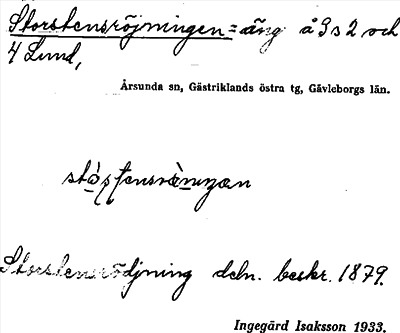 Storstensröjningen = äng å 3 s 2 och
4 Lund,
Årsunda sn, Gästriklands östra tg, Gävleborgs län.
Storstensrödjning dehn. beskr. 1879.
Ingegärd Isaksson 1933.